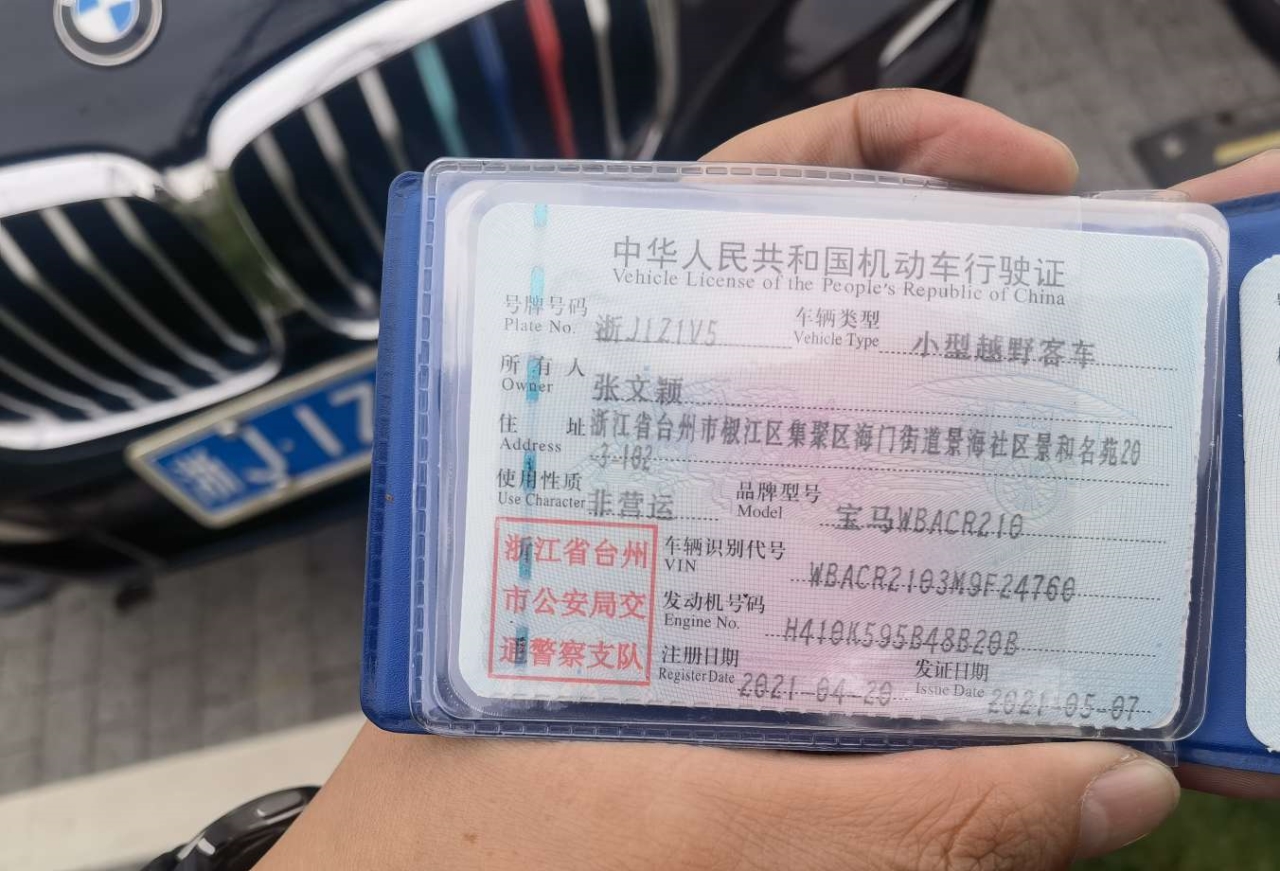 中华人民共和国机动车行驶证
Vehicle License of the People's Republic of China
号牌号码 浙J1Z1V5 车辆类型 小型越野客车
Plate No. Vehicle Type
所有人 张文颖
Owner
住址 浙江省台州市椒江区集聚区海门街道景海社区景和名苑20
Address -3-102
使用性质 非营运 品牌型号 宝马WBACR210
Use Character Model
车辆识别代号 WBACR2103M9F24760
VIN
发动机号码 H410K595B48B20B
Engine No.
注册日期 2021-04-20 发证日期 2021-05-07
Register Date Issue Date
浙江省台州
市公安局交
通警察支队
浙J·1Z